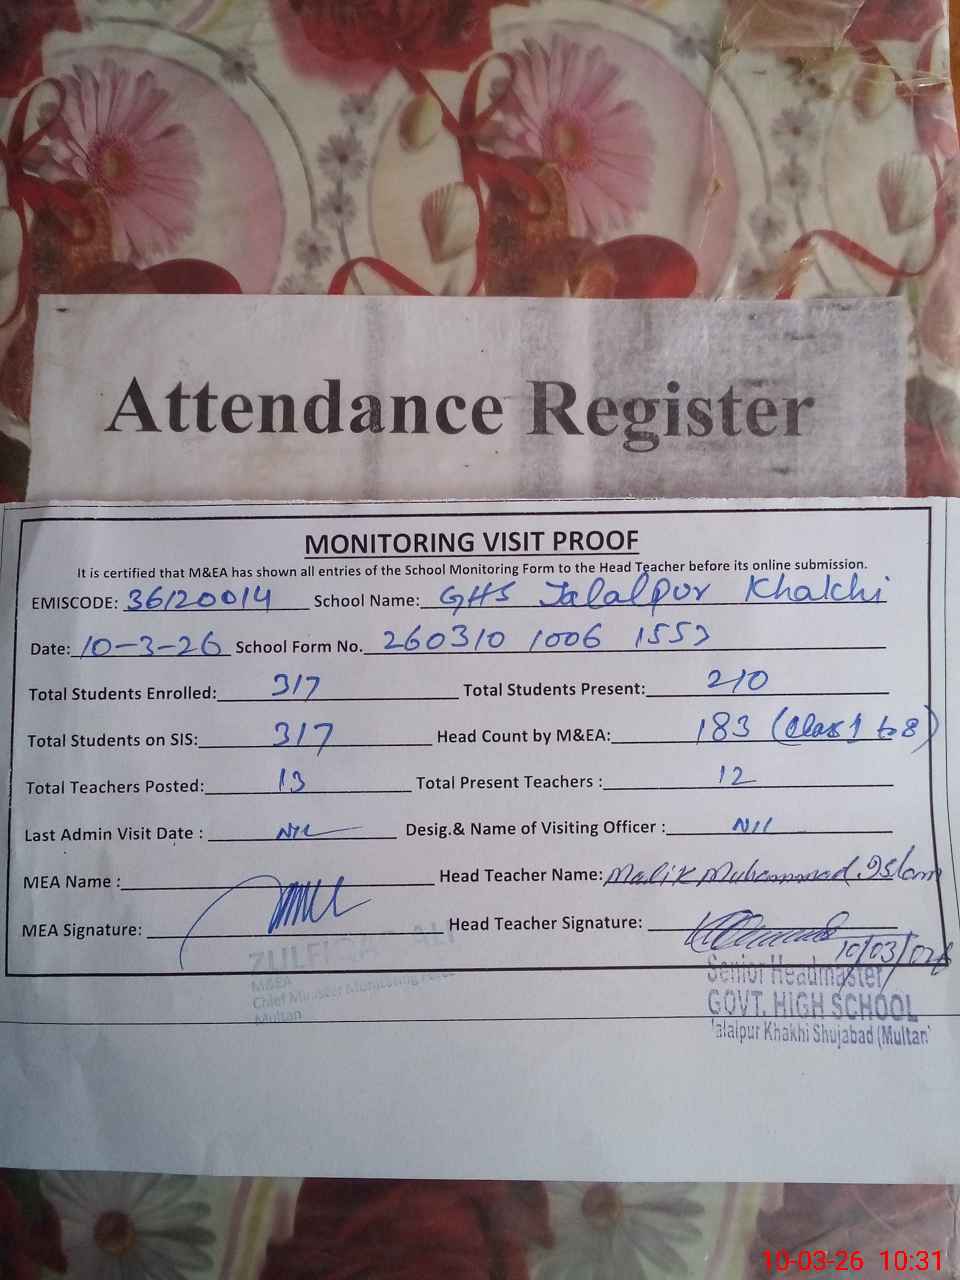 Attendance Register
MONITORING VISIT PROOF
It is certified that M&EA has shown all entries of the School Monitoring Form to the Head Teacher before its online submission.
EMISCODE: 36120014 School Name: GHS Jalalpur Khakhi
Date: 10-3-26 School Form No. 260310 1006 1553
Total Students Enrolled: 317 Total Students Present: 210
Total Students on SIS: 317 Head Count by M&EA: 183 (Class 1 to 8)
Total Teachers Posted: 13 Total Present Teachers : 12
Last Admin Visit Date : Nil Desig.& Name of Visiting Officer : Nil
MEA Name : Head Teacher Name: Malik Muhammad Islam
MEA Signature: Head Teacher Signature:
10/03/026
ZULFIQAR ALI
M&EA
Chief Minister Monitoring Force
Multan
Senior Headmaster
GOVT. HIGH SCHOOL
Jalalpur Khakhi Shujabad (Multan)
10-03-26 10:31